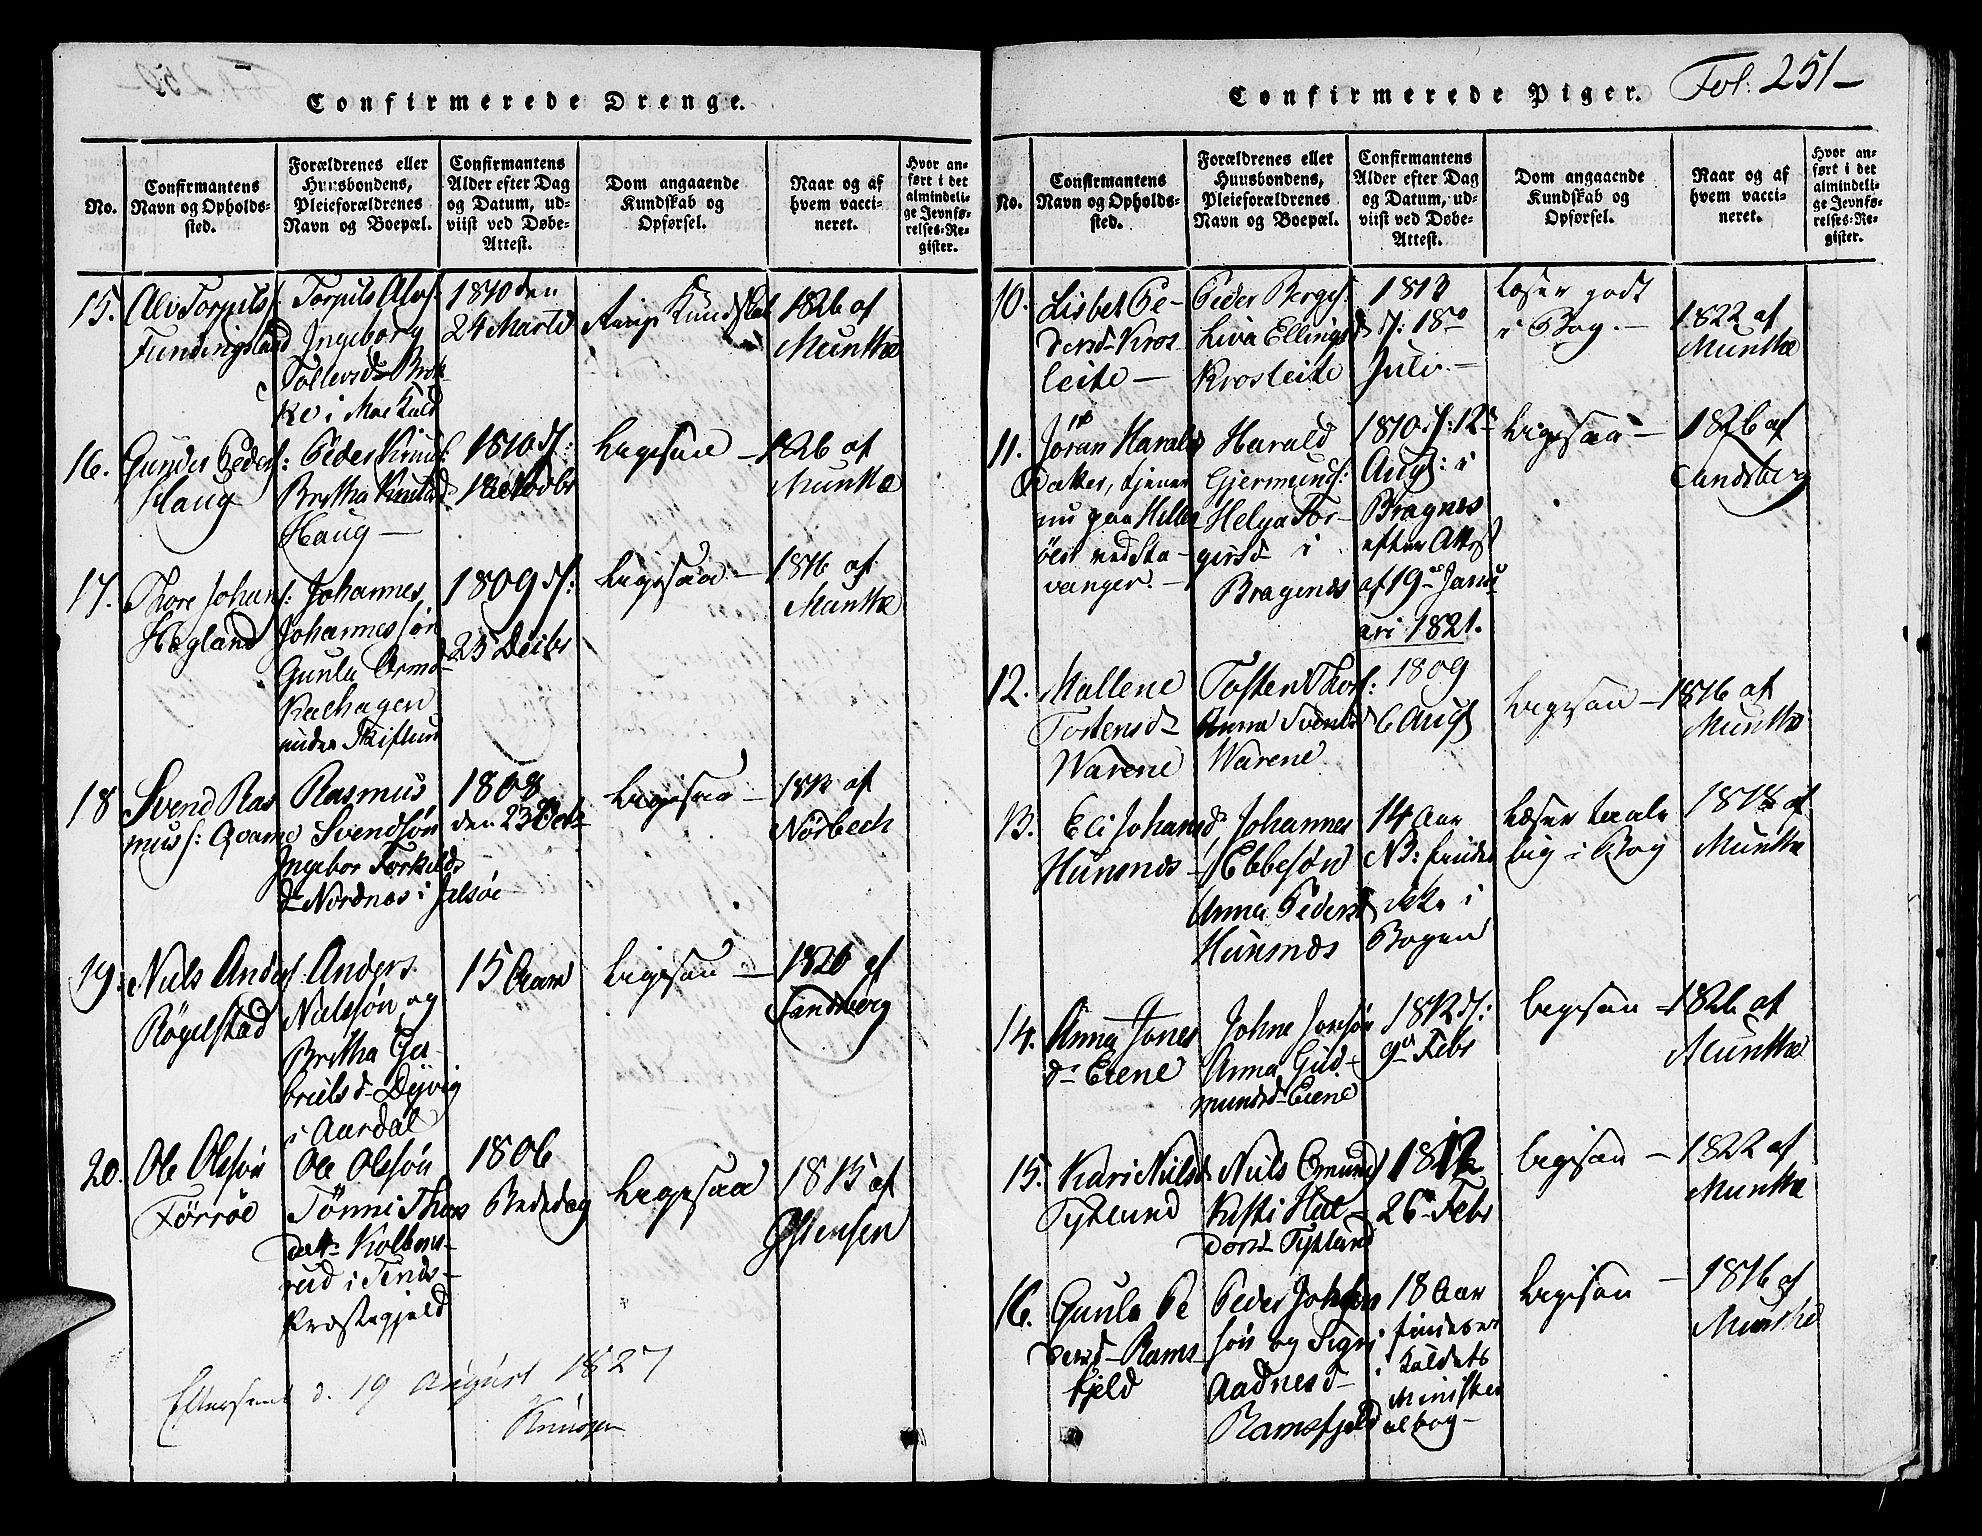 Confirmerede Drenge.
No.
Confirmantens
Navn og Opholds-
sted.
Forældrenes eller
Huusbondens,
Pleieforældrenes
Navn og Boepæl.
Confirmantens
Alder efter Dag
og Datum, ud-
viist ved Døbe-
Attest.
Dom angaaende
Kundskab og
Opførsel.
Naar og af
hvem vacci-
neret.
Hvor an-
ført i det
almindeli-
ge Jevnfø-
relses-Re-
gister.
15.
Fundingsland
Ingeborg
1810 den
24 Marti
Kundskab
1826 af
Munthe
16.
Gunder Peders:
Haug
Peder Knuds:
Britha
Haug —
1810 d:
Ligesaa —
1826 af
Munthe
17.
Thore Johans:
Hegland
Johannes
Johannessøn
Gunla
under
1809 d:
23 Decbr
Ligesaa —
1816 af
Munthe
18
Svend Ras
mus: Qvame
Rasmus
Svendsøn
Ingebor Torkilds
d- Nordnæs i Jelsøe
1808
den 23 Octb
Ligesaa —
af
Nörbech
19:
Niels Anders:
Røgelstad
Anders
Nielssøn og
Britha Ga-
briels d- Dyvig
i Aardal
15 Aar
Ligesaa —
1826 af
Sandsberg
20.
Ole Olssøn
Førrøe
Ole Olssøn
Tønni Thors
datt-
rud i
Præstegjeld
1806
Bededag
Ligesaa
1815 af
Østensen
d. 19 August 1827
Knudsen
Confirmerede Piger.
Fol. 251 —
No.
Confirmantens
Navn og Opholds-
sted.
Forældrenes eller
Huusbondens,
Pleieforældrenes
Navn og Boepæl.
Confirmantens
Alder efter Dag
og Datum, ud-
viist ved Døbe-
Attest.
Dom angaaende
Kundskab og
Opførsel.
Naar og af
hvem vacci-
neret.
Hvor an-
ført i det
almindeli-
ge Jevnfø-
relses-Re-
gister.
10.
Lisbet Pe-
dersd- Kros-
leite —
Peder Berges:
Liva Ellings d
Krosleite
1813
d: 18
Juli —
Læser godt
i Bog. —
1822 af
Munthe
11.
Jøran Haralds
Datter, tjener
nu paa Hille
öen ved Sta-
vanger —
Harald
Gjermunds:
Helga Tor-
gersd- i
Bragenæs
1810 d: 12
Aug: i
Bragnes
efter Attest
af 19 Janu
ari 1821.
Ligesaa —
1826 af
Sandsberg
12.
Mallene
Tostensd-
Warene
Tosten Thors:
Anna Svends d
Warene
1809
6 Aug
Ligesaa —
1816 af
Munthe
13.
Eli Johans d
Hunsnæs
Johannes
Ebbesøn
Anna Peders d
Hunsnæs
14 Aar
NB: findes
ikke i
Bogen
Læser taale
lig i Bog
af
Munthe
14.
Anna Jones
d- Eiene
Johne Jonsøn
Anna Gud-
mundsd- Eiene
1812 d:
9 Febr
Ligesaa —
1826 af
Munthe
15.
Kari Niels d
Tytlund
Niels Omunds
Kisti Hal-
dorsd- Tytland
1812
26 Febr
Ligesaa —
1822 af
Munthe
16.
Gunla Pe
dersd- Rams-
fjeld
Peder
søn og Sigri
Aadnesd-
Ramsfjeld
18 Aar
findes ei
i Kaldets
Ministeri
albog —
Ligesaa —
1816 af
Munthe